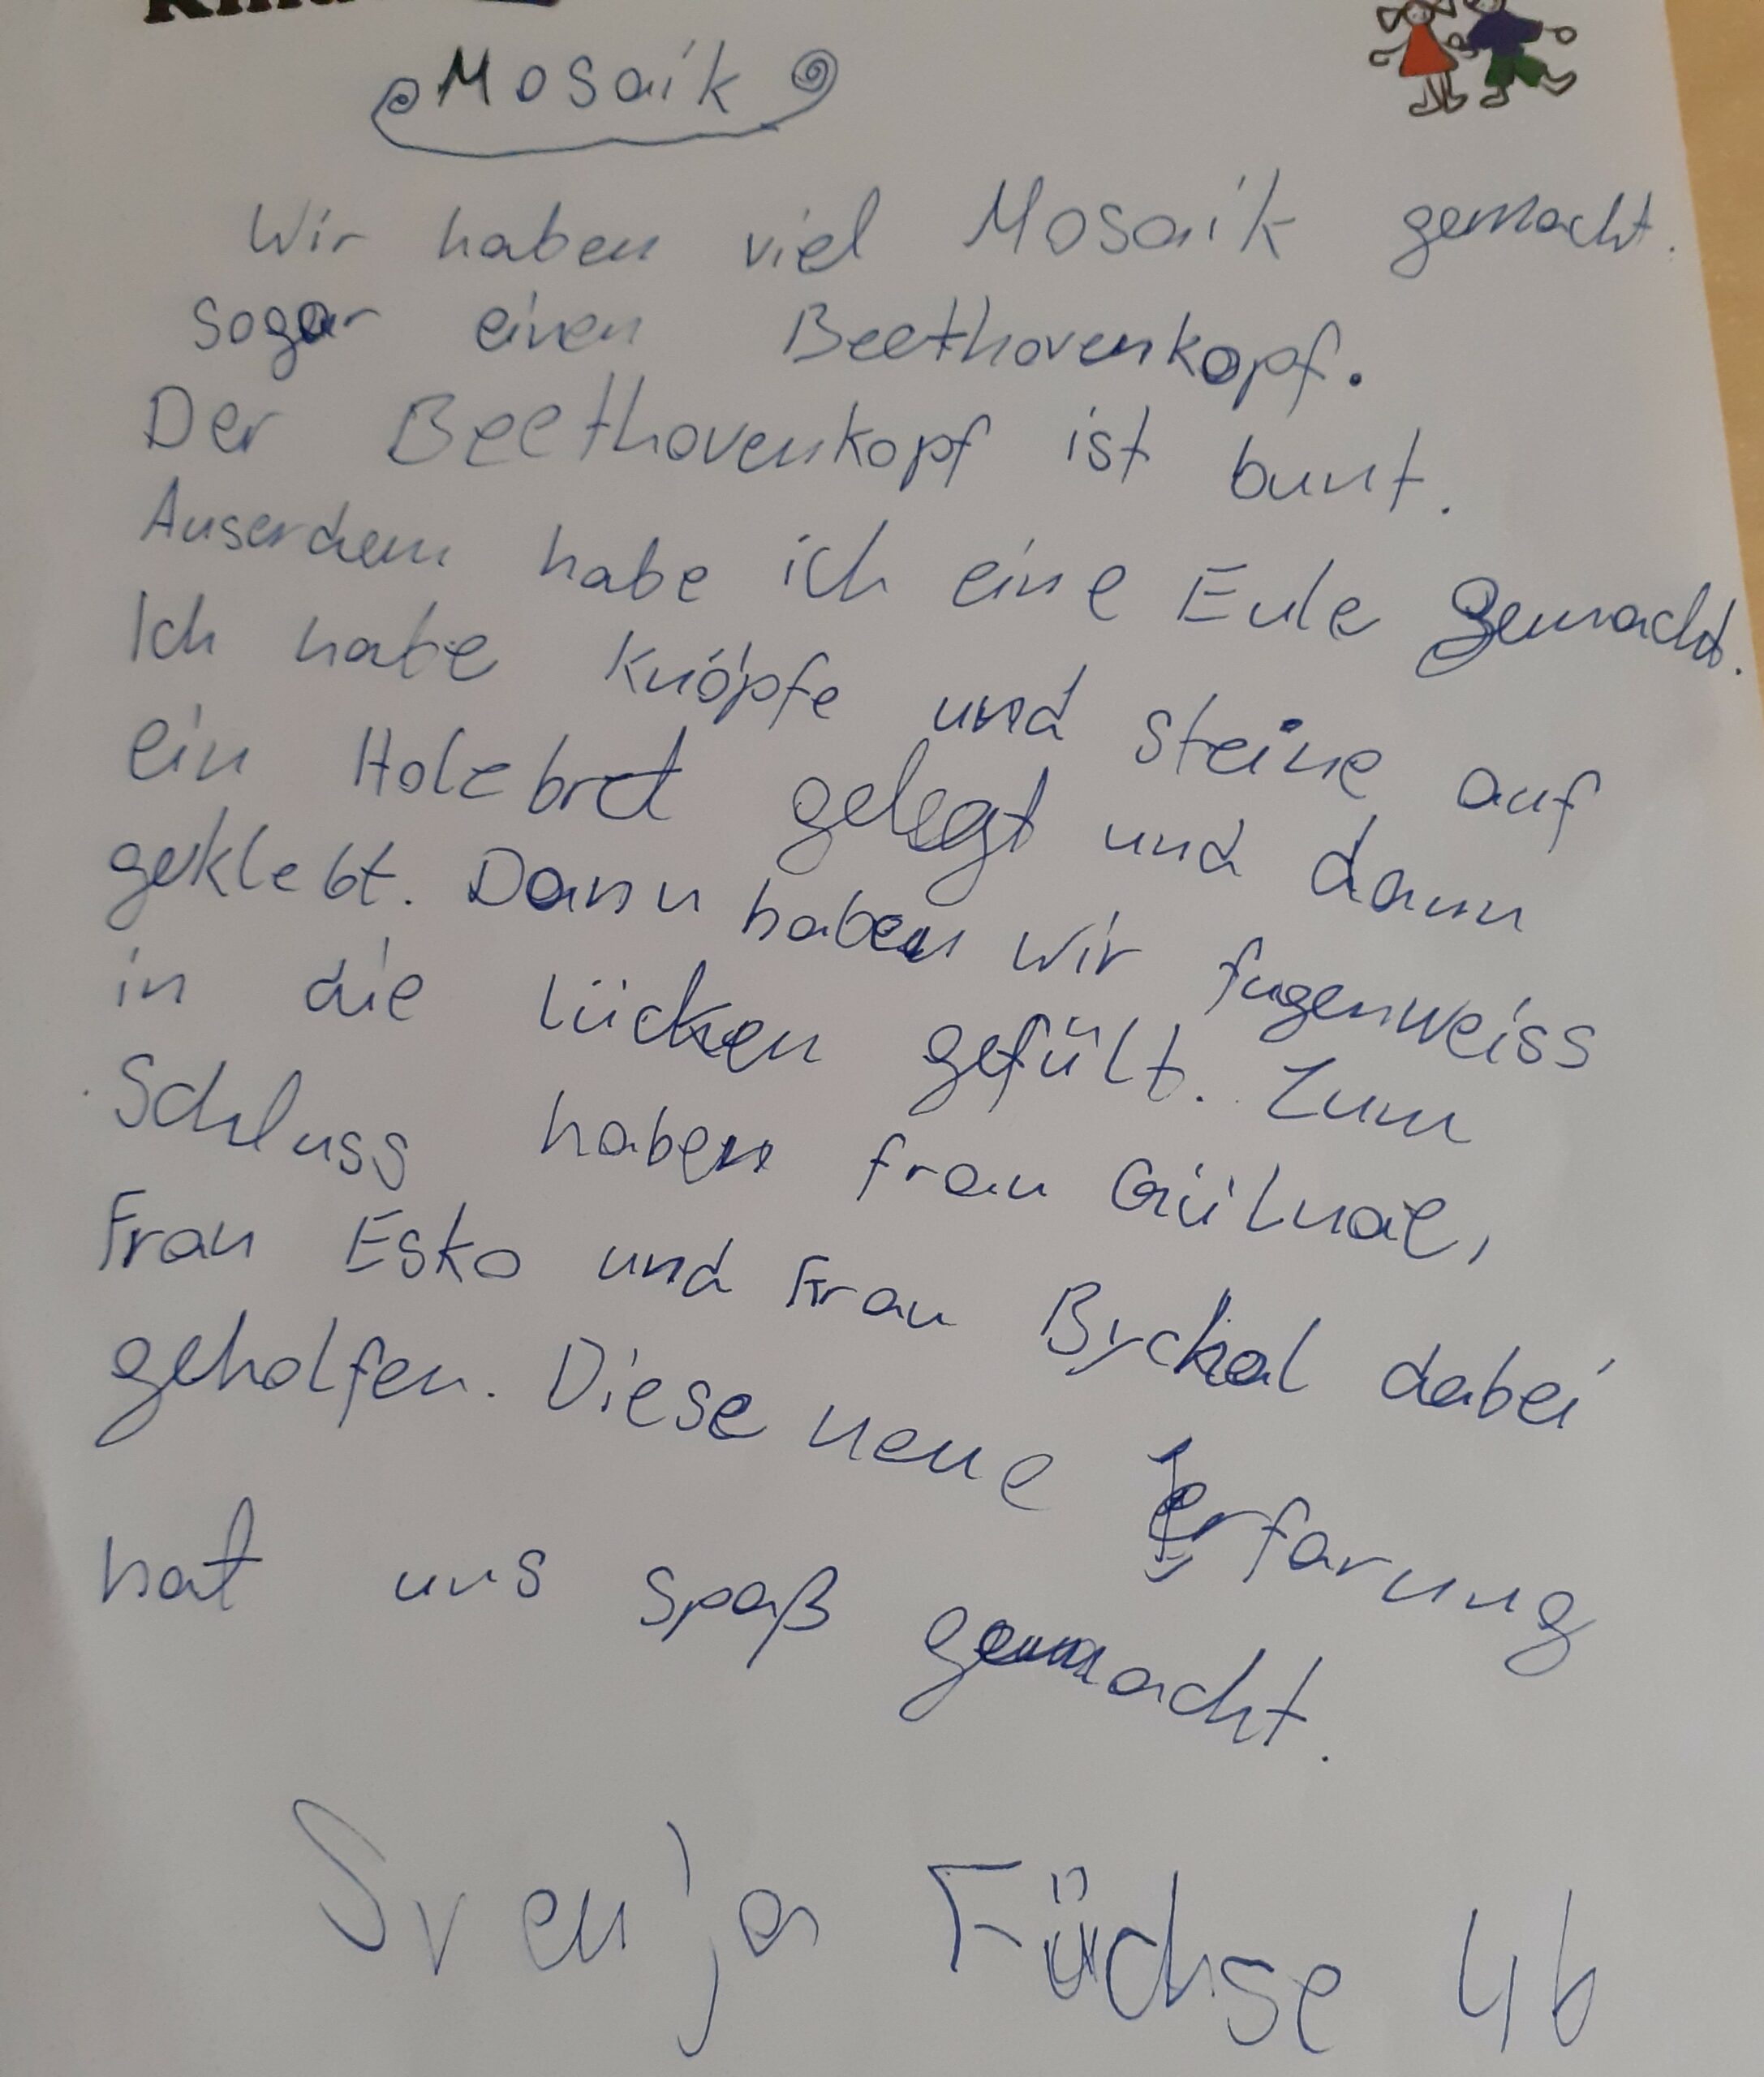 Mosaik
Wir haben viel Mosaik gemacht.
sogar einen Beethovenkopf.
Der Beethovenkopf ist bunt.
Auserdem habe ich eine Eule gemacht.
Ich habe Knöpfe und steine auf
ein Holzbret gelegt und dann
geklebt. Dann haben wir fugenweiss
in die lücken gefült. Zum
Schluss haben frau Gülnae,
Frau Esko und Frau Byckal dabei
geholfen. Diese neue Erfarung
hat uns spaß gemacht.
Svenja Füchse 4b